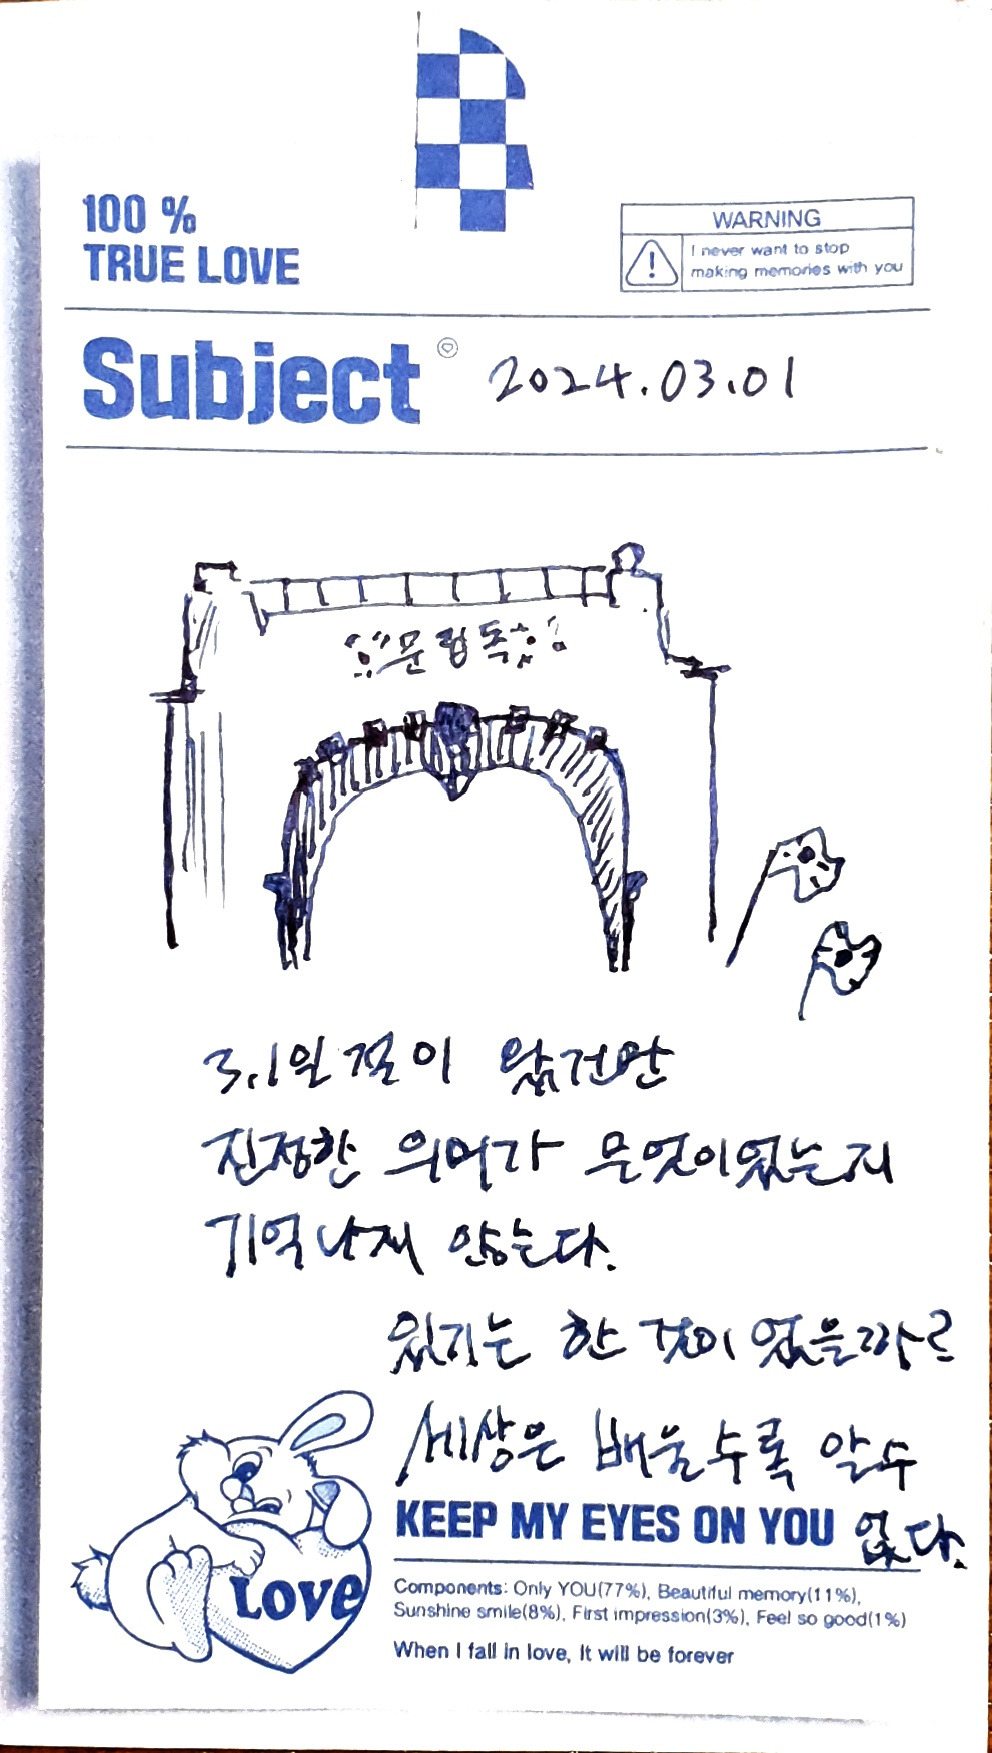 100 %
TRUE LOVE
WARNING
I never want to stop
making memories with you
Subject 2024.03.01
문립독
3.1일절이 왔건만
진정한 의미가 무엇이었는지
기억나지 않는다.
있기는 한 것이 었을까르
세상은 배울수록 알수
KEEP MY EYES ON YOU 없다.
Love
Components: Only YOU(77%), Beautiful memory(11%),
Sunshine smile(8%), First impression(3%), Feel so good(1%)
When I fall in love, It will be forever